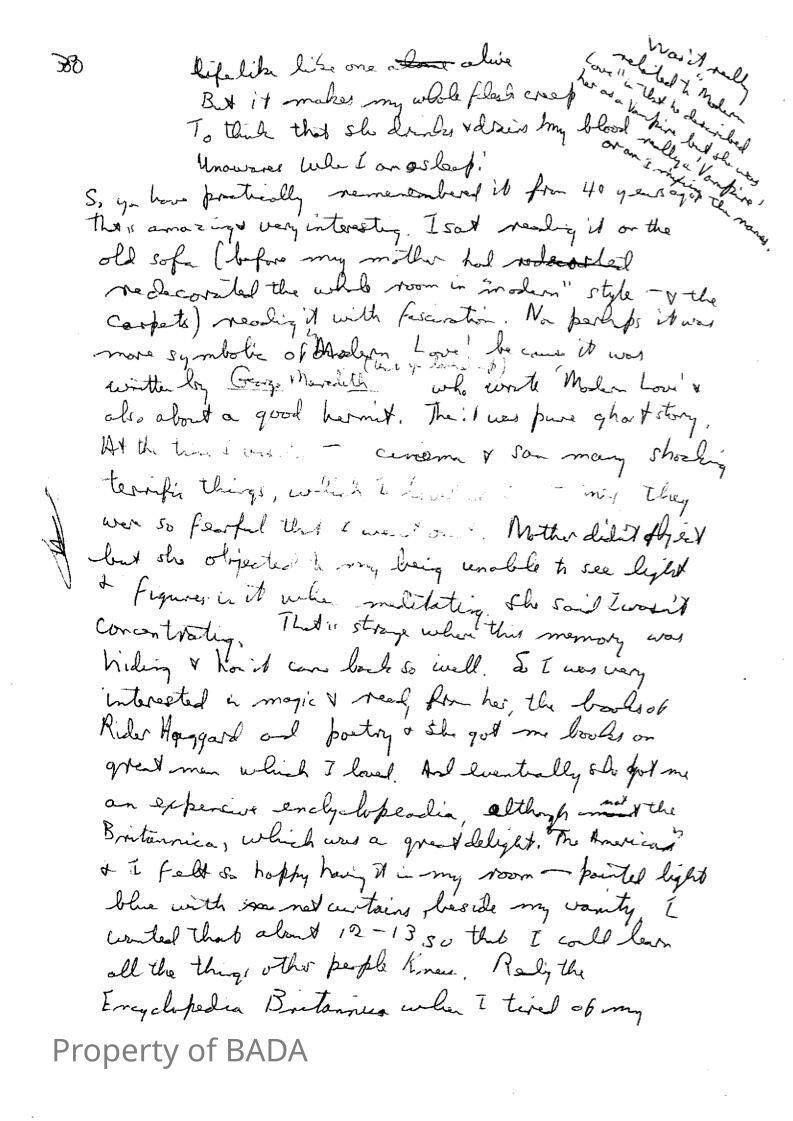 388
lifelike like one alone alive
But it makes my whole flesh creep
To think that she drinks & drains my blood
Unawares while I am asleep!
Wasn't really
related to "Modern
Love" in that he described
her as a Vampire but she was
really a 'Vampire'
or am I mixing the names.
So, you have practically rememembered it from 40 years ago?
That is amazing & very interesting. I sat reading it on the
old sofa (before my mother had redecorted
redecorated the whole room in "modern" style – & the
carpets) reading it with fascination. No perhaps it was
more symbolic of 'in Modern Love! because it was
written by George Meredith who wrote 'Modern Love' &
also about a good hermit. The: I was pure ghost story.
At the time I – cinema & saw many shocking
terrific things, which I They
were so fearful that I went Mother didn't object
but she objected to my being unable to see light
& figures in it when meditating. She said I wasn't
concentrating. That is strange where this memory was
hiding & how it came back so well. So I was very
interested in magic & read from her, the books of
Rider Haggard and poetry & she got me books on
great men which I loved. And eventually she got me
an expensive enclyclopeadia, although not the
Britannica, which was a great delight. "The American"
& I felt so happy having it in my room – painted light
blue with net curtains, beside my vanity. I
wanted that about 12-13 so that I could learn
all the things other people knew. Realy the
Encyclopedia Britannica when I tired of my
Property of BADA